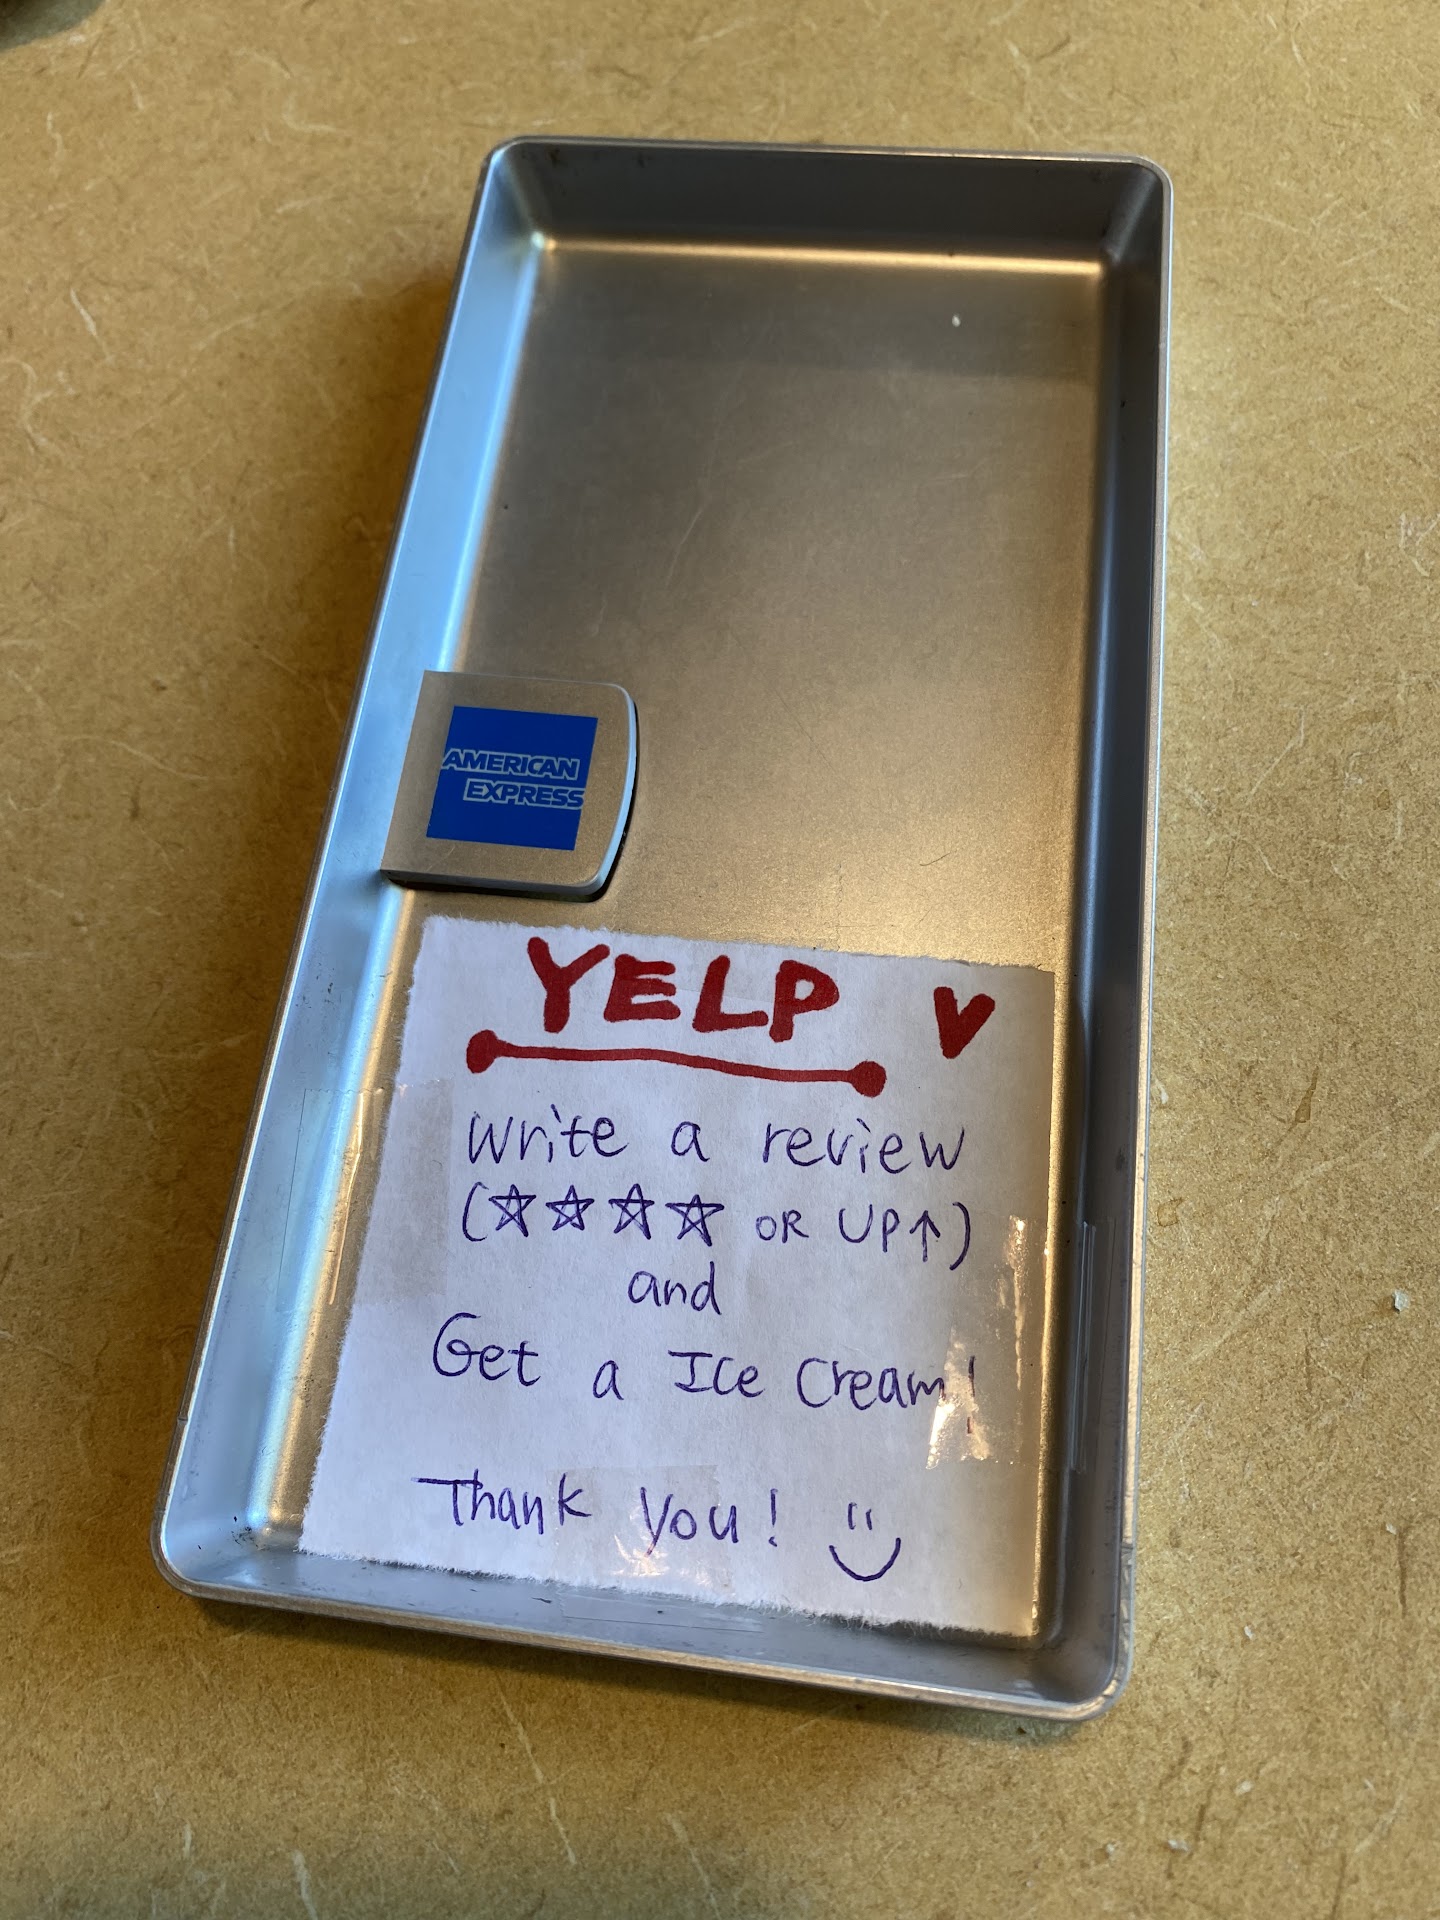 AMERICAN
EXPRESS
YELP
Write a review
(☆☆☆☆ OR UP↑)
and
Get a Ice Cream!
Thank you!